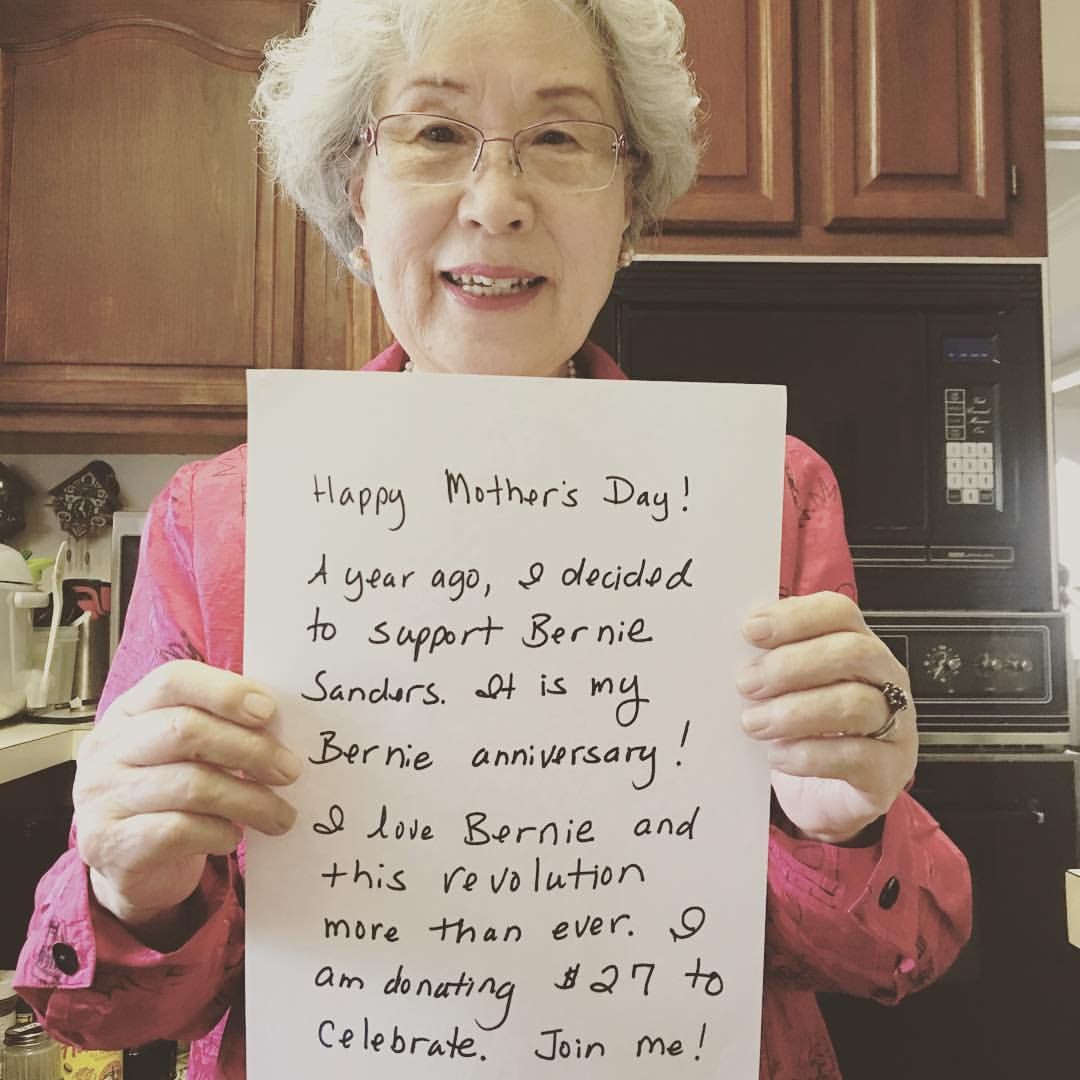 Happy Mother's Day!
A year ago, I decided
to support Bernie
Sanders. It is my
Bernie anniversary!
I love Bernie and
this revolution
more than ever. I
am donating $27 to
celebrate. Join me!